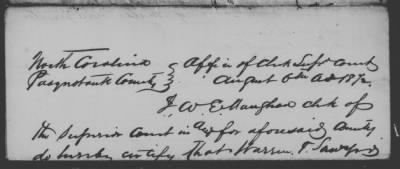 North Carolina } Office of Clk Supr Court
Pasquotank County } August 6th AD 1872.
I, W. E. Vaughan clk of
the Superior Court in and for aforesaid County
do hereby certify that Warren T. Sawyer